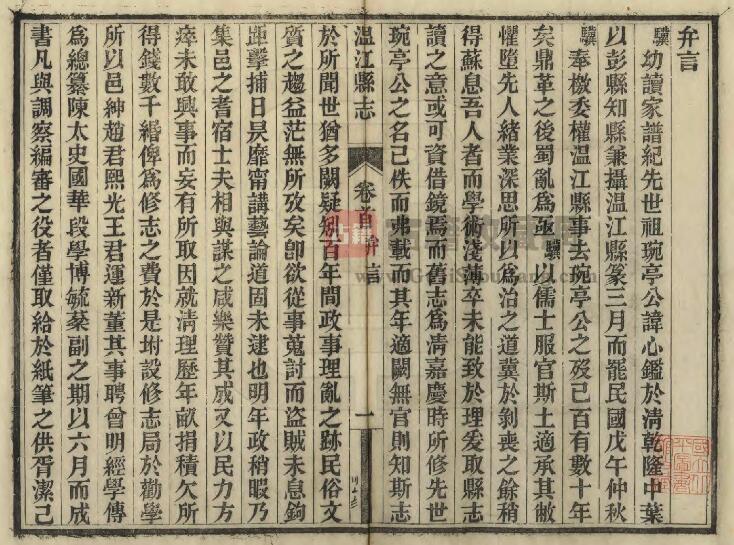 弁言
驥幼讀家譜紀先世祖琬亭公諱心鑑於清乾隆中葉
以彭縣知縣兼攝溫江縣篆三月而罷民國戊午仲秋
驥奉檄委權溫江縣事去琬亭公之歿已百有數十年
矣鼎革之後蜀亂為亟驥以儒士服官斯土適承其敝
懼墮先人緒業深思所以為治之道冀於剝喪之餘稍
得蘇息吾人者而學術淺薄卒未能致於理爰取縣志
讀之意或可資借鏡焉而舊志為清嘉慶時所修先世
琬亭公之名已佚而弗載而其年適闕無官則知斯志
溫江縣志
卷首弁言
一
於所聞世猶多闕疑矧百年間政事理亂之跡民俗文
質之趨益茫無所攷矣卽欲從事蒐討而盜賊未息鉤
距擊捕日昃靡甯講藝論道固未逮也明年政稍暇乃
集邑之耆宿士夫相與謀之咸樂贊其成又以民力方
瘁未敢興事而妄有所取因就清理歷年畝捐積欠所
得錢數千緡俾為修志之費於是坿設修志局於勸學
所以邑紳趙君熙光王君運新董其事聘曾明經學傳
為總纂陳太史國華段學博毓棻副之期以六月而成
書凡與調察編審之役者僅取給於紙筆之供胥潔己